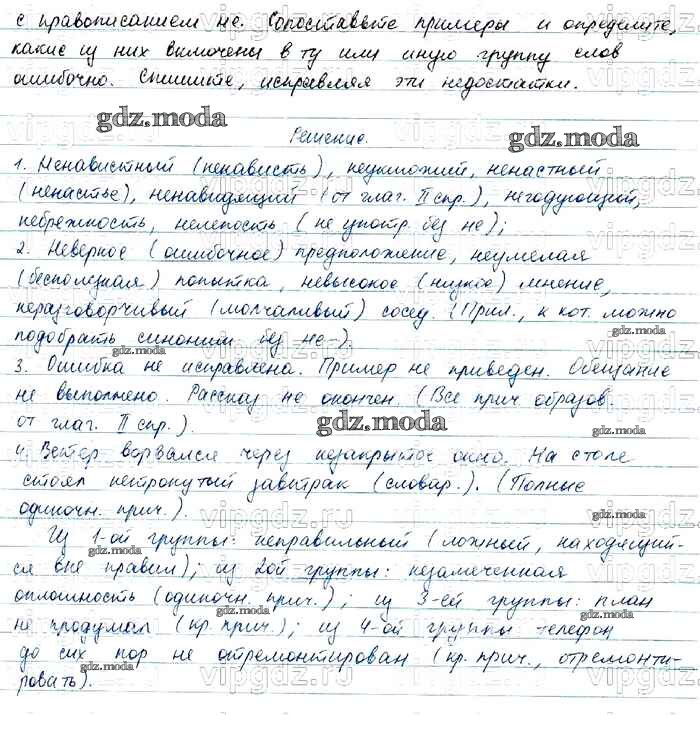 с правописанием не. Сопоставьте примеры и определите,
какие из них включены в ту или иную группу слов
ошибочно. Спишите, исправляя эти недостатки.
gdz.moda
gdz.moda
Решение.
1. Ненавистный (ненависть), неуклюжий, ненастный
(ненастье), ненавидящий (от глаг. II спр.), негодующий,
небрежность, нелепость (не употр. без не);
2. Неверное (ошибочное) предположение, неумелая
(бесполезная) попытка, невысокое (низкое) мнение,
неразговорчивый (молчаливый) сосед. (Прил., к кот. можно
подобрать синоним без не-).
gdz.moda
gdz.moda
3. Ошибка не исправлена. Пример не приведен. Обещание
не выполнено. Рассказ не окончен. (Все прич. образов.
от глаг. II спр.).
gdz.moda
gdz.moda
4. Ветер ворвался через незакрытое окно. На столе
стоял нетронутый завтрак (словар.). (Полные
одиночн. прич.).
Из 1-ой группы: неправильный (ложный, находящий-
ся вне правил); из 2ой группы: незамеченная
оплошность (одиночн. прич.); из 3-ей группы: план
не продуман (кр. прич.); из 4-ой группы телефон
до сих пор не отремонтирован (кр. прич., отремонти-
ровать).
gdz.moda
gdz.moda
gdz.moda
gdz.moda
vipgdz.ru